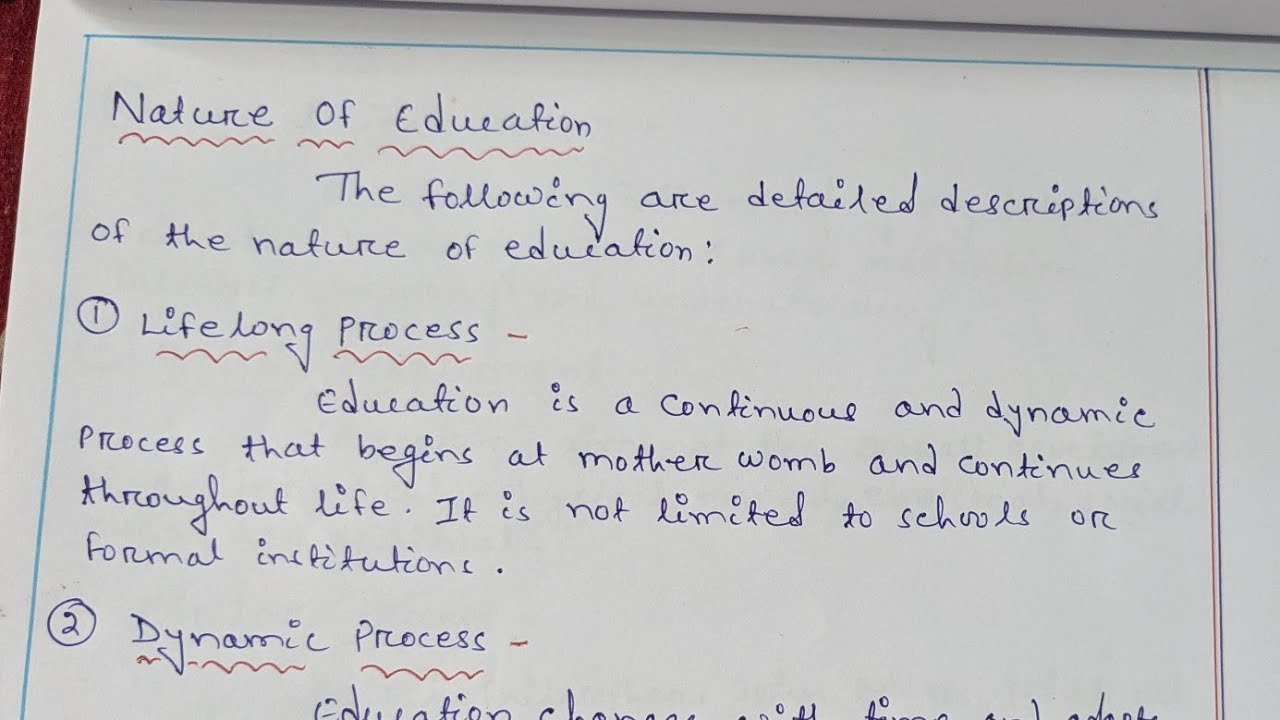 Nature Of Education
The following are detailed descriptions
of the nature of education:
① Lifelong Process -
Education is a continuous and dynamic
process that begins at mother womb and continues
throughout life. It is not limited to schools or
formal institutions.
② Dynamic Process -
Education changes with time and adapt